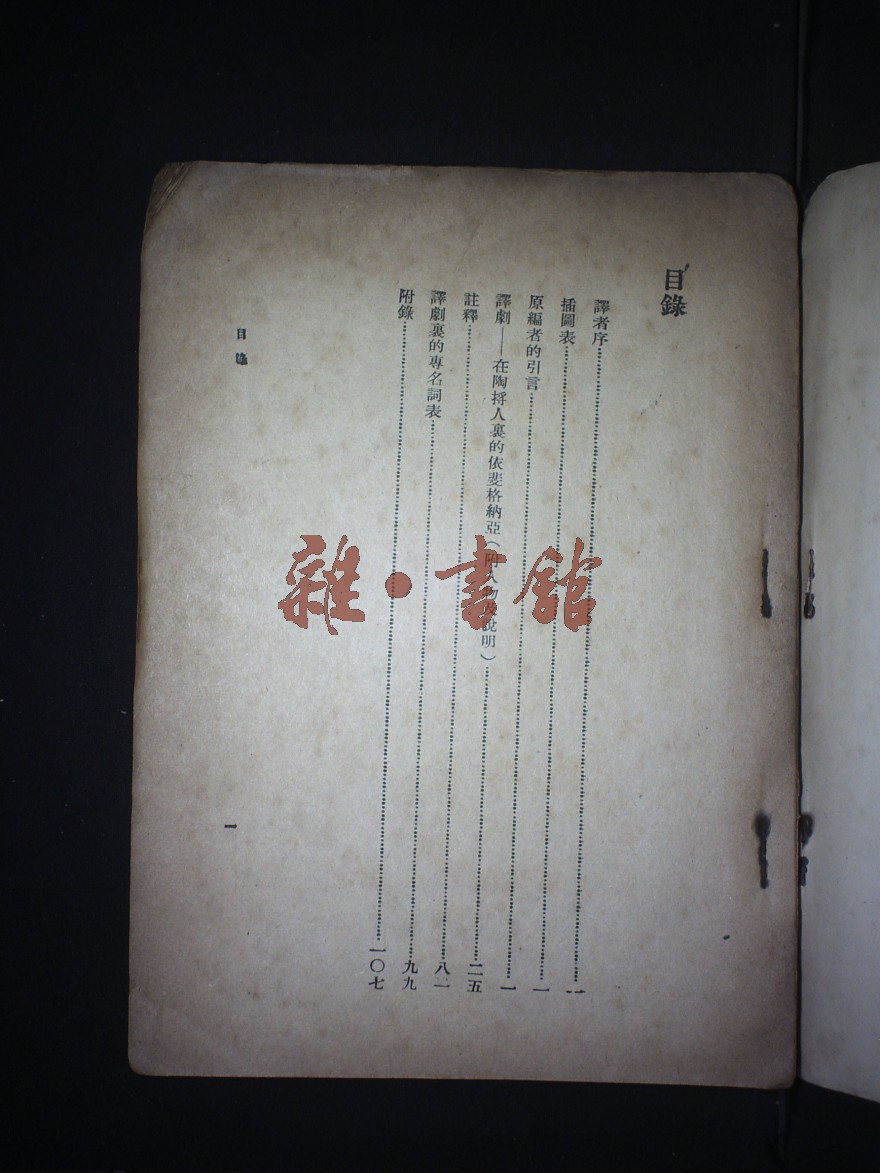 目錄
譯者序……一
插圖表……一
原編者的引言……一
譯劇——在陶捋人裏的依斐格納亞（附人物及說明）……二五
註釋……八一
譯劇裏的專名詞表……九九
附錄……一〇七
目錄
一
雜·書館